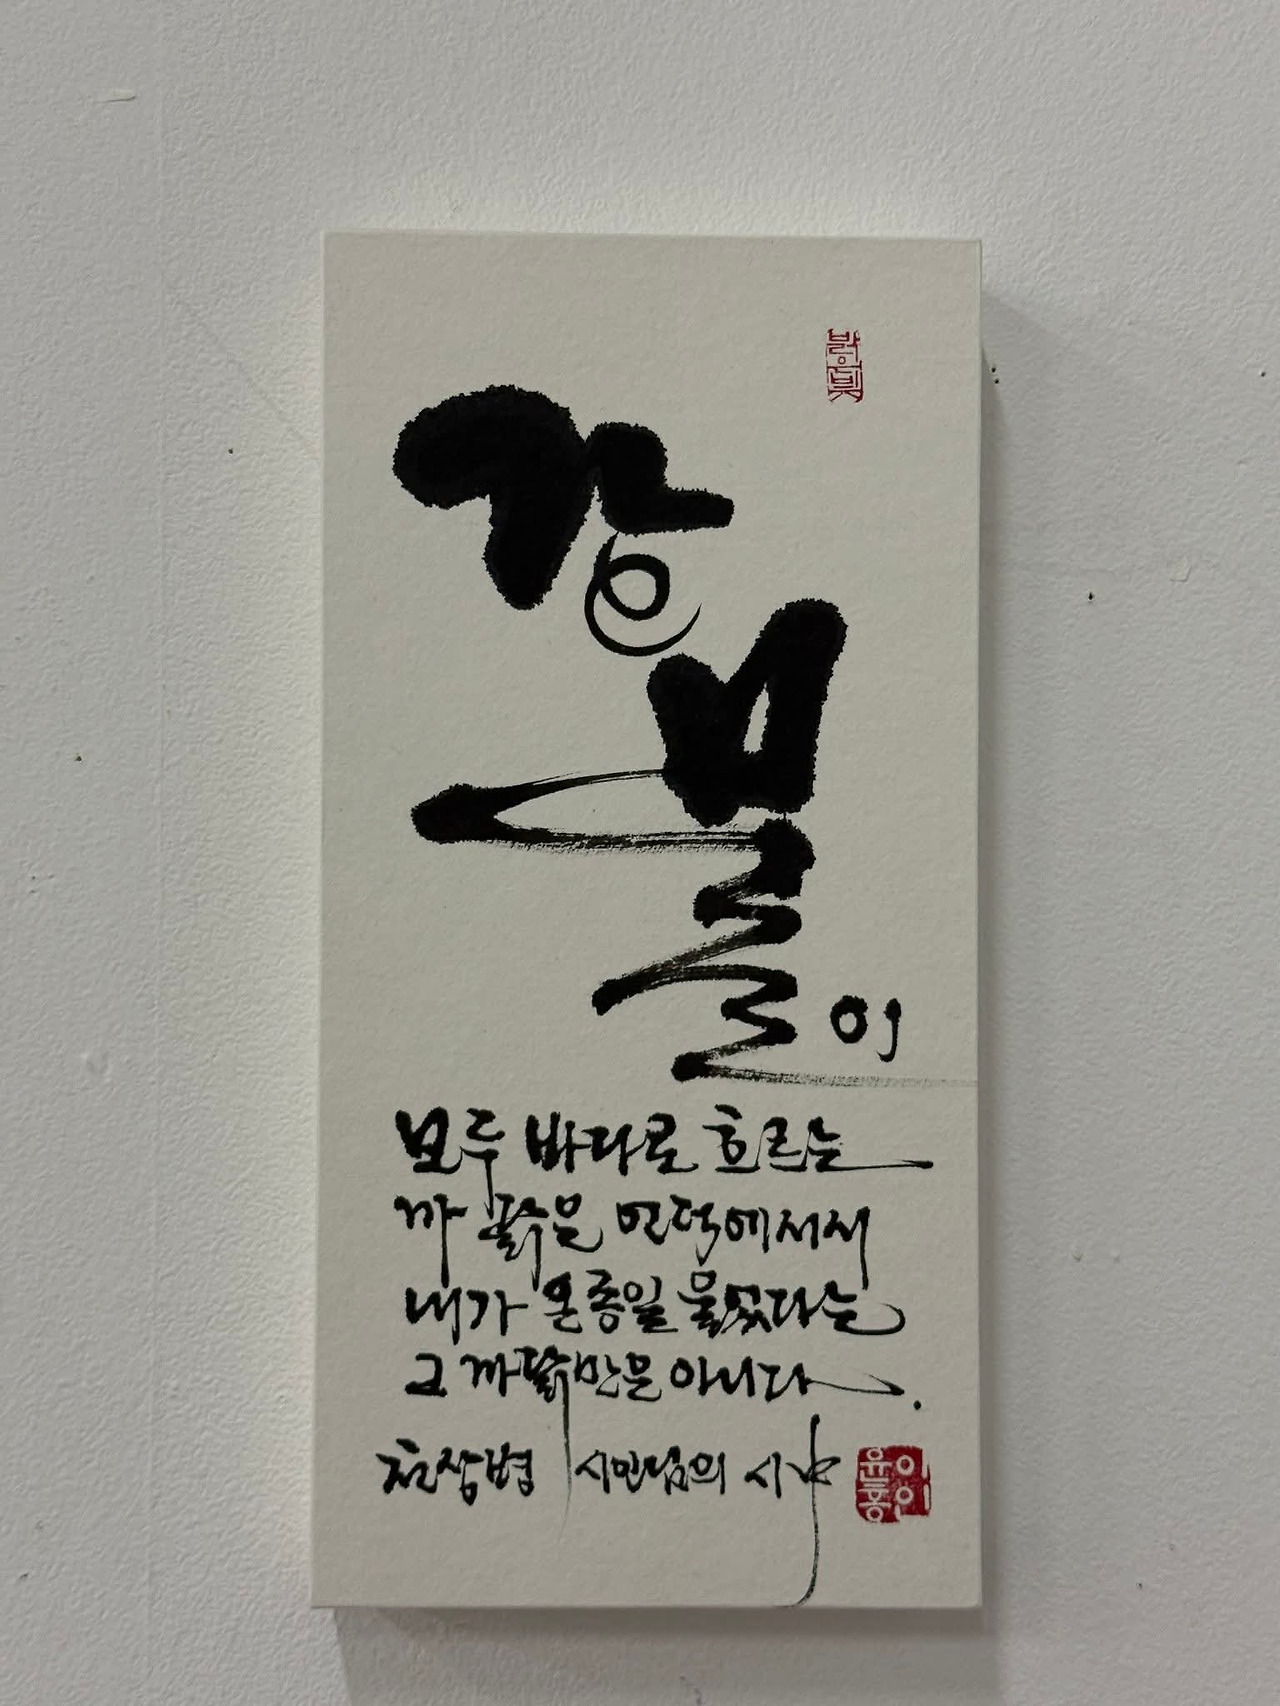 강물이
모두 바다로 흐르는
까닭은 언덕에서서
내가 온종일 울었다는
그 까닭만은 아니다.
천상병 시인님의 시 中